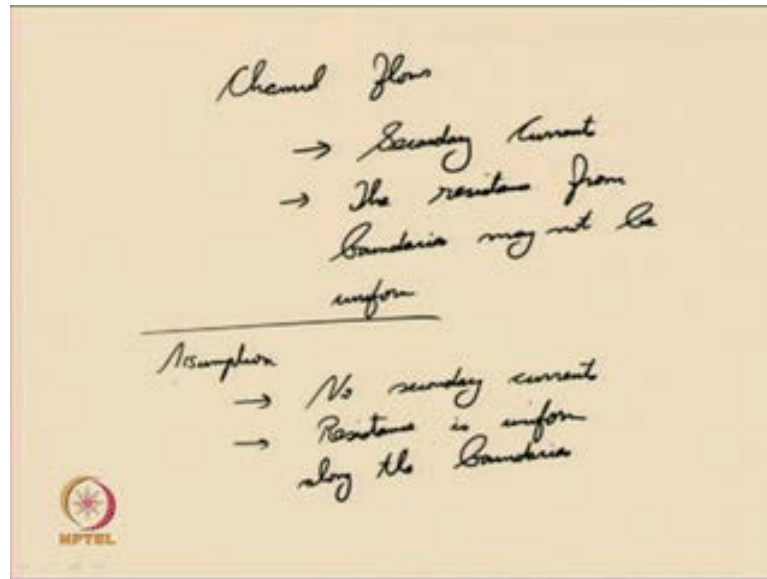 Channel Flows
→ Secondary Current
→ The resistance from
boundaries may not be
uniform
Assumption
→ No secondary currents
→ Resistance is uniform
along the boundaries
NPTEL